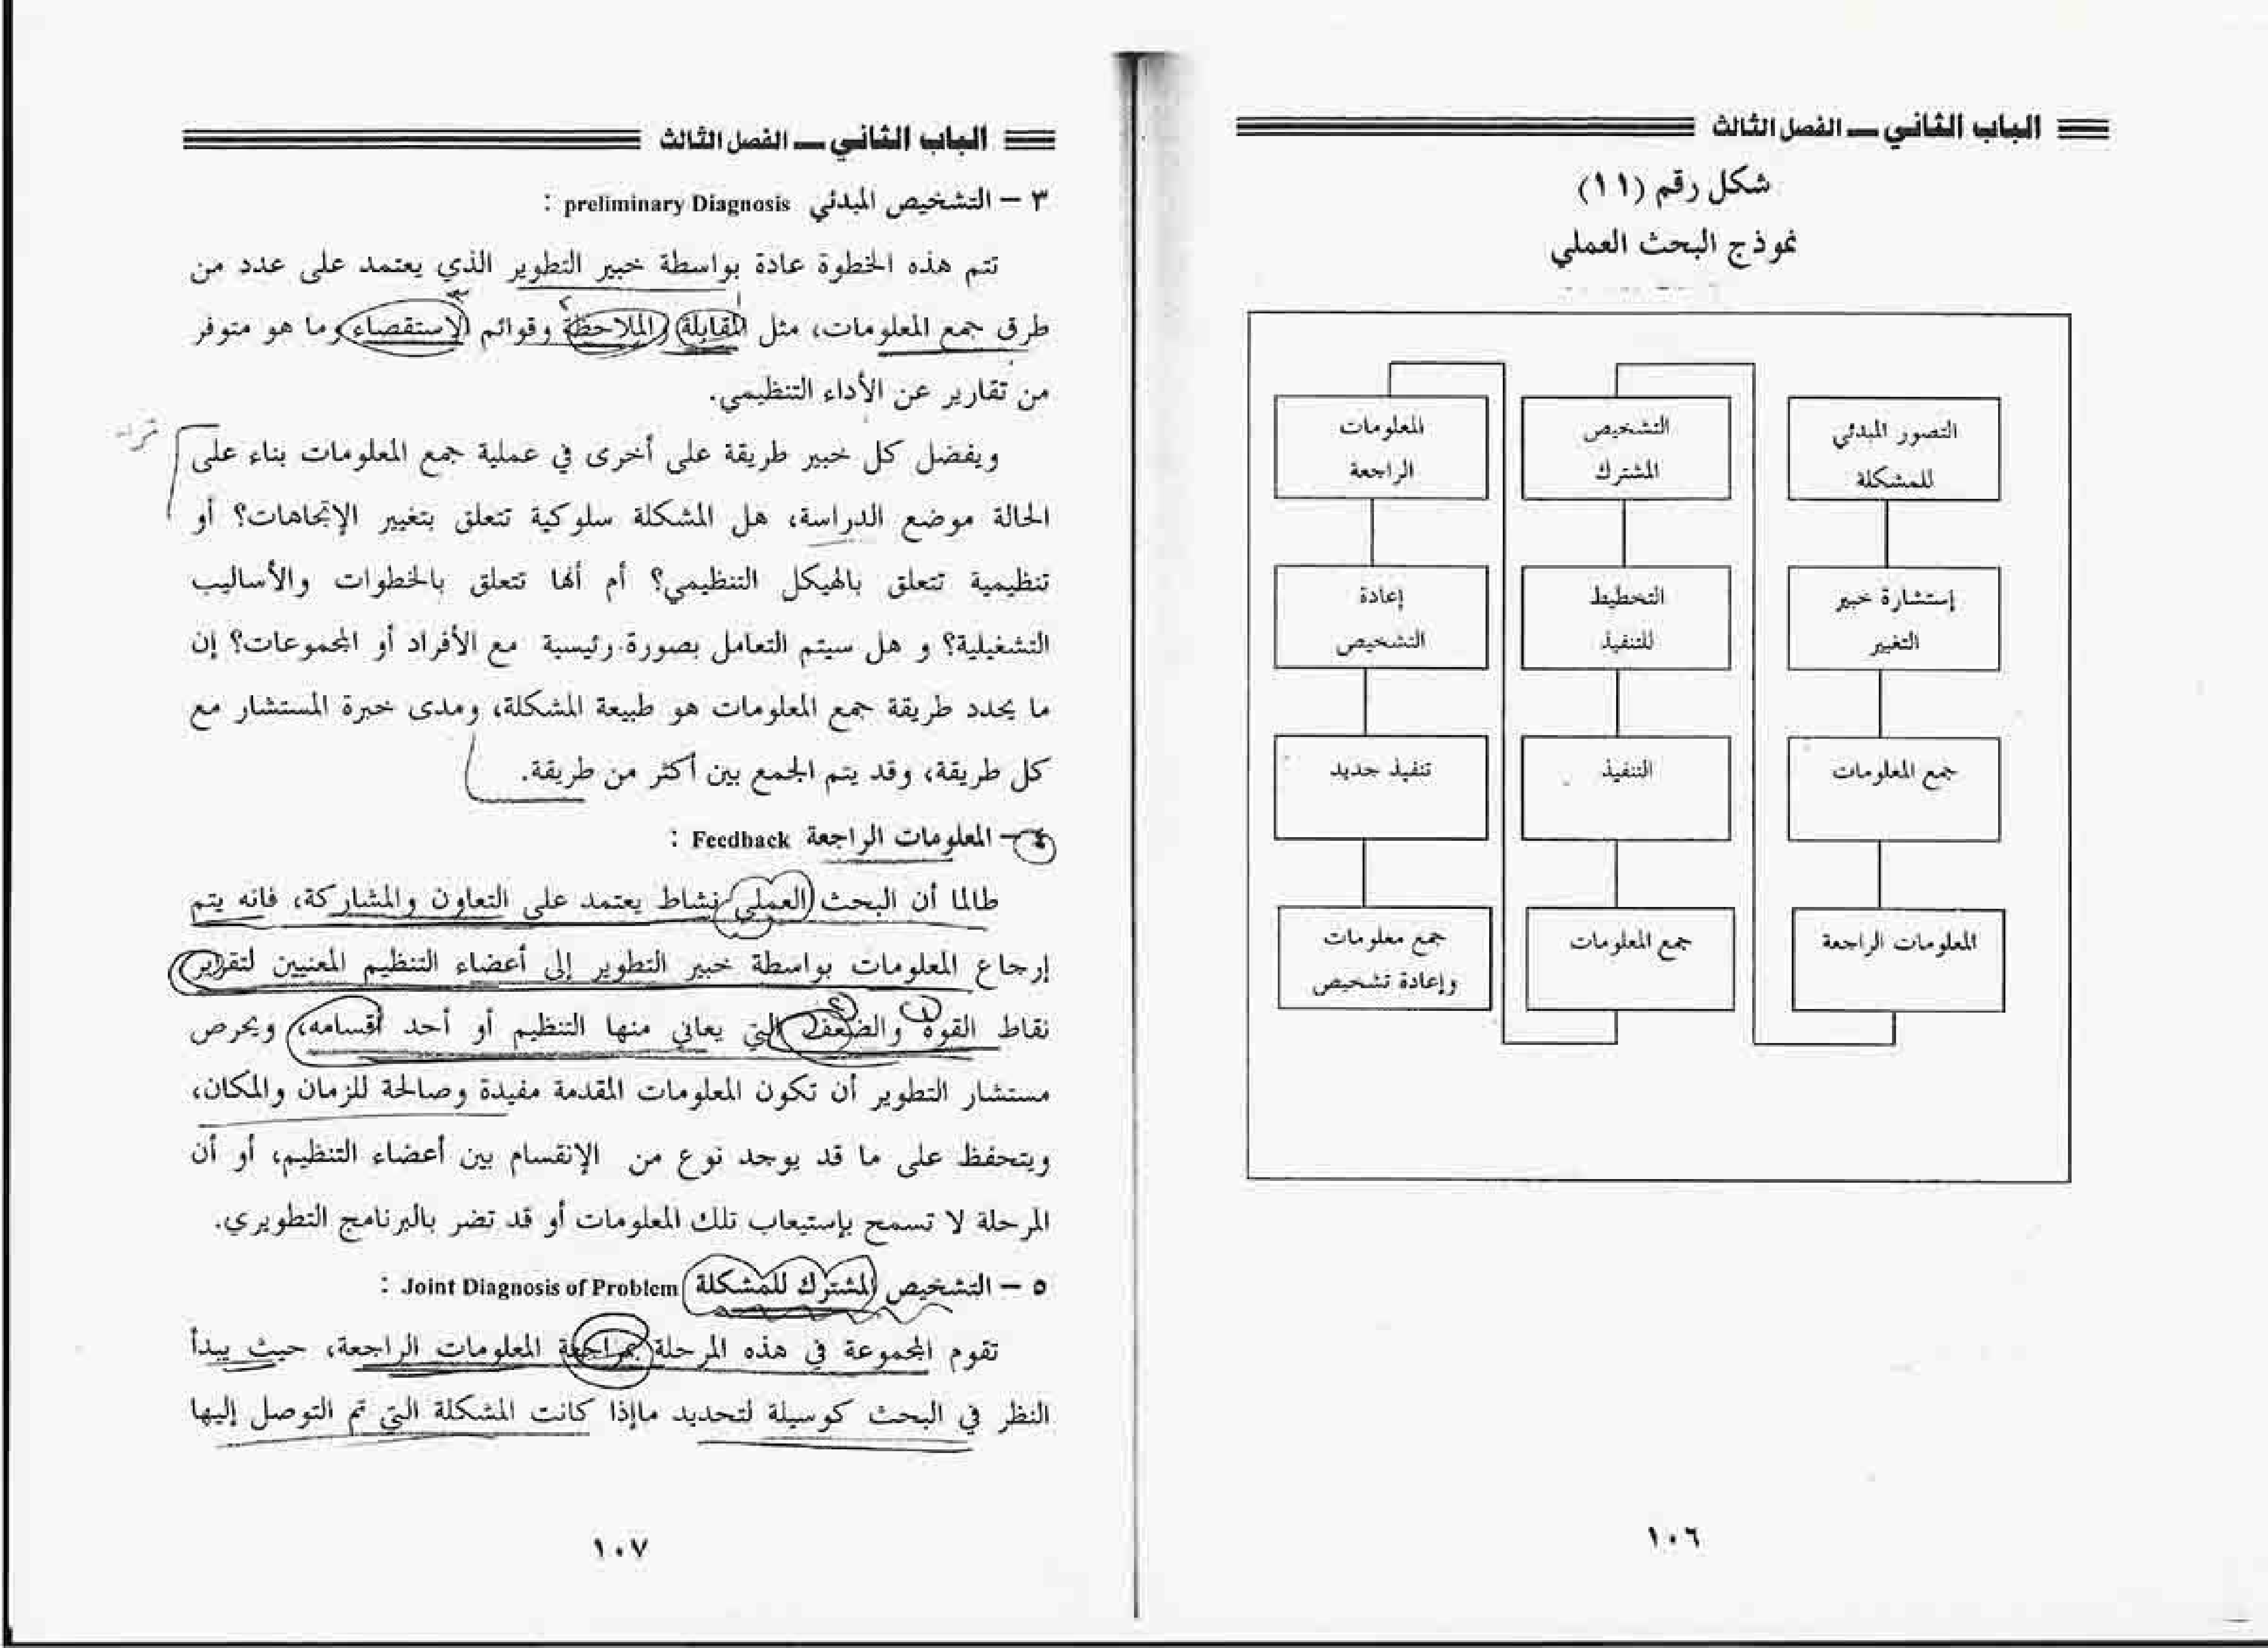 الباب الثاني ـــ الفصل الثالث
شكل رقم (١١)
نموذج البحث العملي
التصور المبدئي
للمشكلة
إستشارة خبير
التغيير
جمع المعلومات
المعلومات الراجعة
التشخيص
المشترك
التخطيط
للتنفيذ
التنفيذ
جمع المعلومات
المعلومات
الراجعة
إعادة
التشخيص
تنفيذ جديد
جمع معلومات
وإعادة تشخيص
١٠٦
الباب الثاني ـــ الفصل الثالث
٣ – التشخيص المبدئي preliminary Diagnosis :
تتم هذه الخطوة عادة بواسطة خبير التطوير الذي يعتمد على عدد من
طرق جمع المعلومات، مثل المقابلة والملاحظة وقوائم الإستقصاء وما هو متوفر
من تقارير عن الأداء التنظيمي.
ويفضل كل خبير طريقة على أخرى في عملية جمع المعلومات بناء على
الحالة موضع الدراسة، هل المشكلة سلوكية تتعلق بتغيير الإتجاهات؟ أو
تنظيمية تتعلق بالهيكل التنظيمي؟ أم أنها تتعلق بالخطوات والأساليب
التشغيلية؟ و هل سيتم التعامل بصورة رئيسية مع الأفراد أو المجموعات؟ إن
ما يحدد طريقة جمع المعلومات هو طبيعة المشكلة، ومدى خبرة المستشار مع
كل طريقة، وقد يتم الجمع بين أكثر من طريقة.
٤ – المعلومات الراجعة Feedback :
طالما أن البحث العملي نشاط يعتمد على التعاون والمشاركة، فانه يتم
إرجاع المعلومات بواسطة خبير التطوير إلى أعضاء التنظيم المعنيين لتقرير
نقاط القوة والضعف التي يعاني منها التنظيم أو أحد أقسامه، ويحرص
مستشار التطوير أن تكون المعلومات المقدمة مفيدة وصالحة للزمان والمكان،
ويتحفظ على ما قد يوجد نوع من الإنقسام بين أعضاء التنظيم، أو أن
المرحلة لا تسمح بإستيعاب تلك المعلومات أو قد تضر بالبرنامج التطويري.
٥ – التشخيص المشترك للمشكلة Joint Diagnosis of Problem :
تقوم المجموعة في هذه المرحلة بمراجعة المعلومات الراجعة، حيث يبدأ
النظر في البحث كوسيلة لتحديد ماإذا كانت المشكلة التي تم التوصل إليها
١٠٧